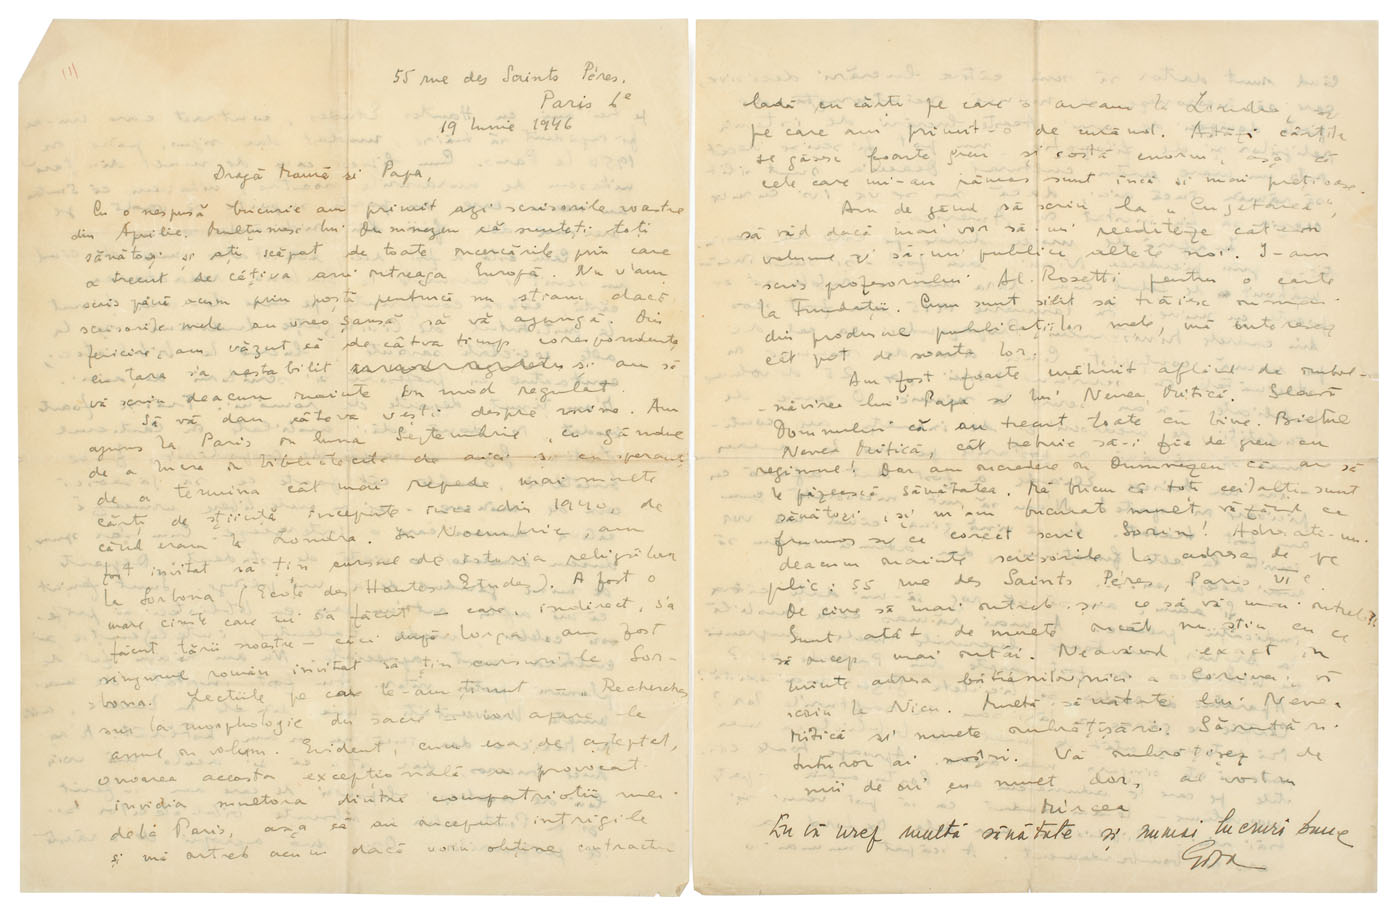 55 rue des Saints Pères.
Paris 6e
19 Iunie 1946
Dragă Mamă și Papa,
Cu o nespusă bucurie am primit azi scrisorile voastre
din Aprilie. Mulțumesc lui Dumnezeu că sunteți toți
sănătoși și ați scăpat de toate încercările prin care
a trecut de câțiva ani întreaga Europă. Nu v'am
scris până acum prin poștă pentrucă nu știam dacă
scrisorile mele au vreo șansă să vă ajungă. Din
fericire, am văzut că de câtva timp corespondența
cu țara s'a restabilit și am să
vă scriu deacum înainte în mod regulat.
Să vă dau câteva vești despre mine. Am
ajuns la Paris în luna Septembrie, cu gândul
de a lucra în bibliotecile de aici și cu speranța
de a termina cât mai repede mai multe
cărți de știință începute încă din 1940, de
când eram la Londra. În Noembrie, am
fost invitat să țin cursul de istoria religiilor
la Sorbona (École des Hautes Etudes). A fost o
mare cinste care mi s'a făcut – care, indirect, s'a
făcut țării noastre – căci după Iorga am fost
singurul român invitat să țin cursuri la Sor-
bona. Lecțiile pe care le-am ținut – „Recherches
sur la morphologie du sacré" – vor apare la
anul în volum. Evident, cum era de așteptat,
onoarea aceasta excepțională a provocat
invidia multora dintre compatrioții mei
dela Paris, așa că au început intrigile
și mă întreb acum dacă voiu obține contractu
ladă cu cărți pe care o aveam la Londra și
pe care am primit-o de curând. Astăzi cărțile
se găsesc foarte greu și costă enorm, așa că
cele care mi-au rămas sunt încă și mai prețioase.
Am de gând să scriu la „Cugetarea",
să văd dacă mai vor să-mi reediteze cât
volume și să-mi publice altele noi. I-am
scris profesorului Al. Rosetti pentru o carte
la Fundații. Cum sunt silit să trăiesc numai
din produsul publicațiilor mele, mă interesez
cât pot de soarta lor.
Am fost foarte mâhnit aflând de îmbol-
năvirea lui Papa și lui Nenea Mitică. Slavă
Domnului că au trecut toate cu bine. Bietul
Nenea Mitică, cât trebuie să-i fie de greu cu
regimul! Dar am încredere în Dumnezeu că are să
le păzească sănătatea. Mă bucur că toți ceilalți sunt
sănătoși, și m'am bucurat mult văzând ce
frumos și ce corect scrie Sorin! Adresați-mi
deacum înainte scrisorile la adresa de pe
plic: 55 rue des Saints Pères, Paris VI e
De cine să mai întreb și ce să vă mai întreb?
Sunt atât de multe încât nu știu cu ce
să încep mai întâi. Neavând exact în
minte adresa a Corinei, vă
scriu la Nicu. Multă sănătate lui Nenea
Mitică și multe îmbrățișări. Sărutări
tuturor ai noștri. Vă îmbrățișez de
mii de ori cu mult dor, al vostru
Mircea
Eu vă urez multă sănătate și numai lucruri bune